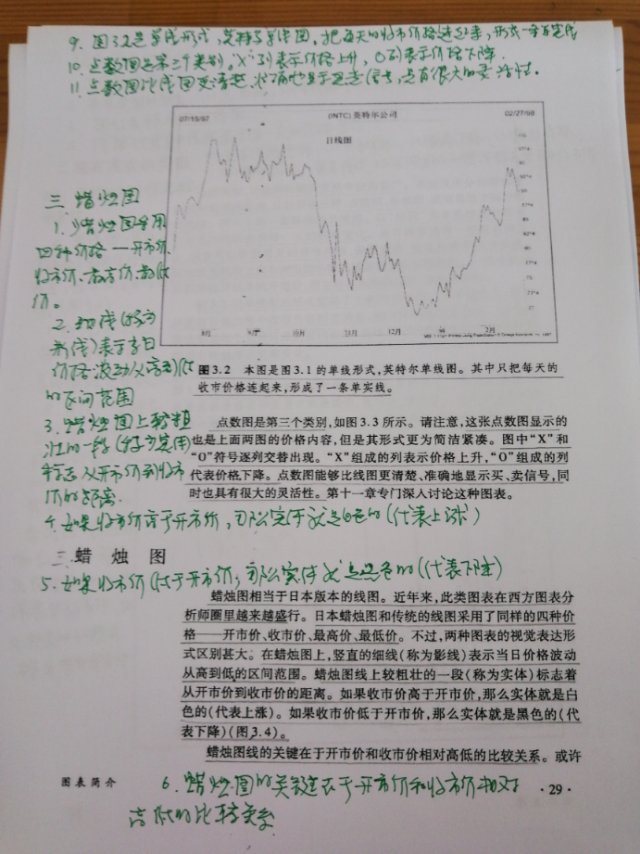 9. 图3.2是单线形式,英特尔单线图,把每天的收市价格连起来,形成一条单实线
10. 点数图是第三个类别。"X"列表示价格上升,O列表示价格下降.
11. 点数图比线图更清楚、准确地显示买卖信号,也有很大的灵活性.
07/15/97 (INTC)英特尔公司 02/27/98
日线图
8月 9月 10月 11月 12月 98 2月
图3.2 本图是图3.1的单线形式,英特尔单线图。其中只把每天的
收市价格连起来,形成了一条单实线。
三 蜡烛图
1. 蜡烛图采用
四种价格——开市价、
收市价、最高价、最低
价。
2. 细线(称为
影线)表示当日
价格波动从高到低
的区间范围
3. 蜡烛图上较粗
壮的一段(称为实体)
标志从开市价到收市
价的距离.
点数图是第三个类别,如图3.3所示。请注意,这张点数图显示的
也是上面两图的价格内容,但是其形式更为简洁紧凑。图中“X”和
“O”符号逐列交替出现。“X”组成的列表示价格上升,“O”组成的列
代表价格下降。点数图能够比线图更清楚、准确地显示买、卖信号,同
时也具有很大的灵活性。第十一章专门深入讨论这种图表。
4. 如果收市价高于开市价,那么实体就是白色的(代表上涨)
三 蜡烛图
5. 如果收市价低于开市价,那么实体就是黑色的(代表下降)
蜡烛图相当于日本版本的线图。近年来,此类图表在西方图表分
析师圈里越来越盛行。日本蜡烛图和传统的线图采用了同样的四种价
格——开市价、收市价、最高价、最低价。不过,两种图表的视觉表达形
式区别甚大。在蜡烛图上,竖直的细线(称为影线)表示当日价格波动
从高到低的区间范围。蜡烛图线上较粗壮的一段(称为实体)标志着
从开市价到收市价的距离。如果收市价高于开市价,那么实体就是白
色的(代表上涨)。如果收市价低于开市价,那么实体就是黑色的(代
表下降)(图3.4)。
蜡烛图线的关键在于开市价和收市价相对高低的比较关系。或许
图表简介 ·29·
6. 蜡烛图的关键在于开市价和收市价相对
高低的比较关系